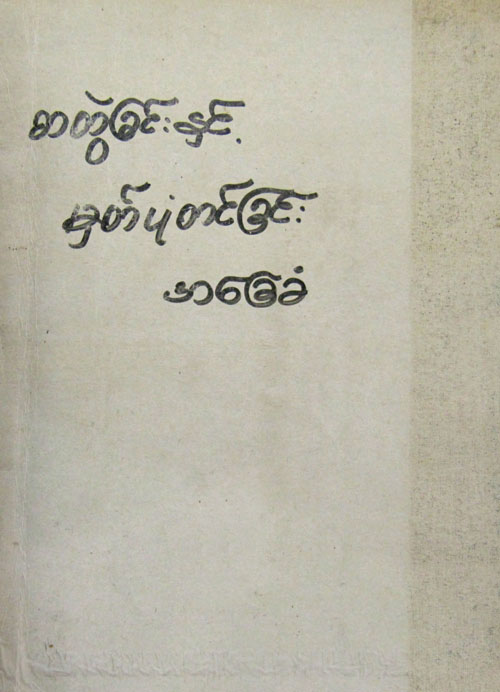 စာတွဲခြင်းနှင့်
မှတ်ပုံတင်ခြင်း
အခြေခံ